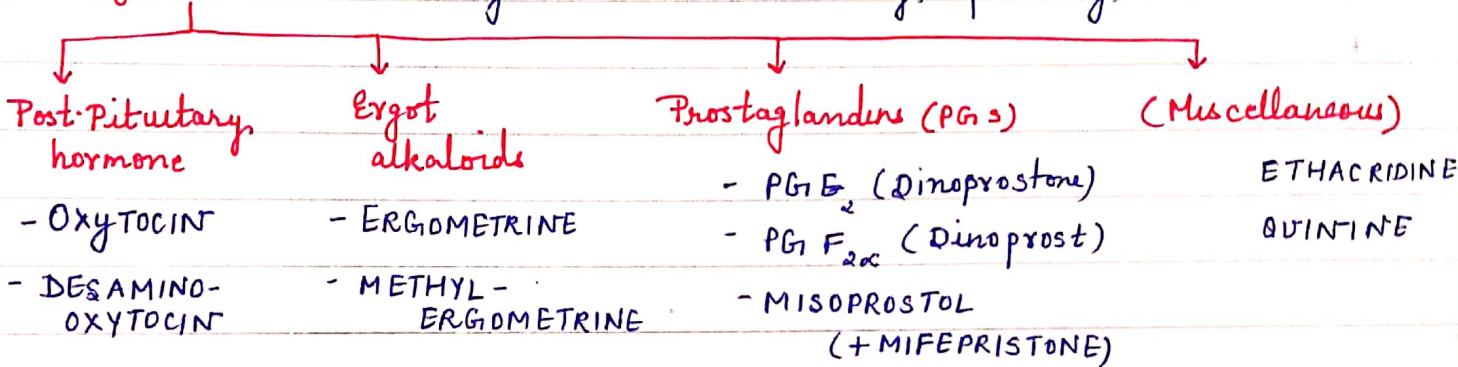 Post-Pituitary hormone
- OXYTOCIN
- DESAMINO-
OXYTOCIN
Ergot
alkaloids
- ERGOMETRINE
- METHYL-
ERGOMETRINE
Prostaglandins (PGs)
- PGE2 (Dinoprostone)
- PGF2α (Dinoprost)
- MISOPROSTOL
(+ MIFEPRISTONE)
(Miscellaneous)
ETHACRIDINE
QUININE